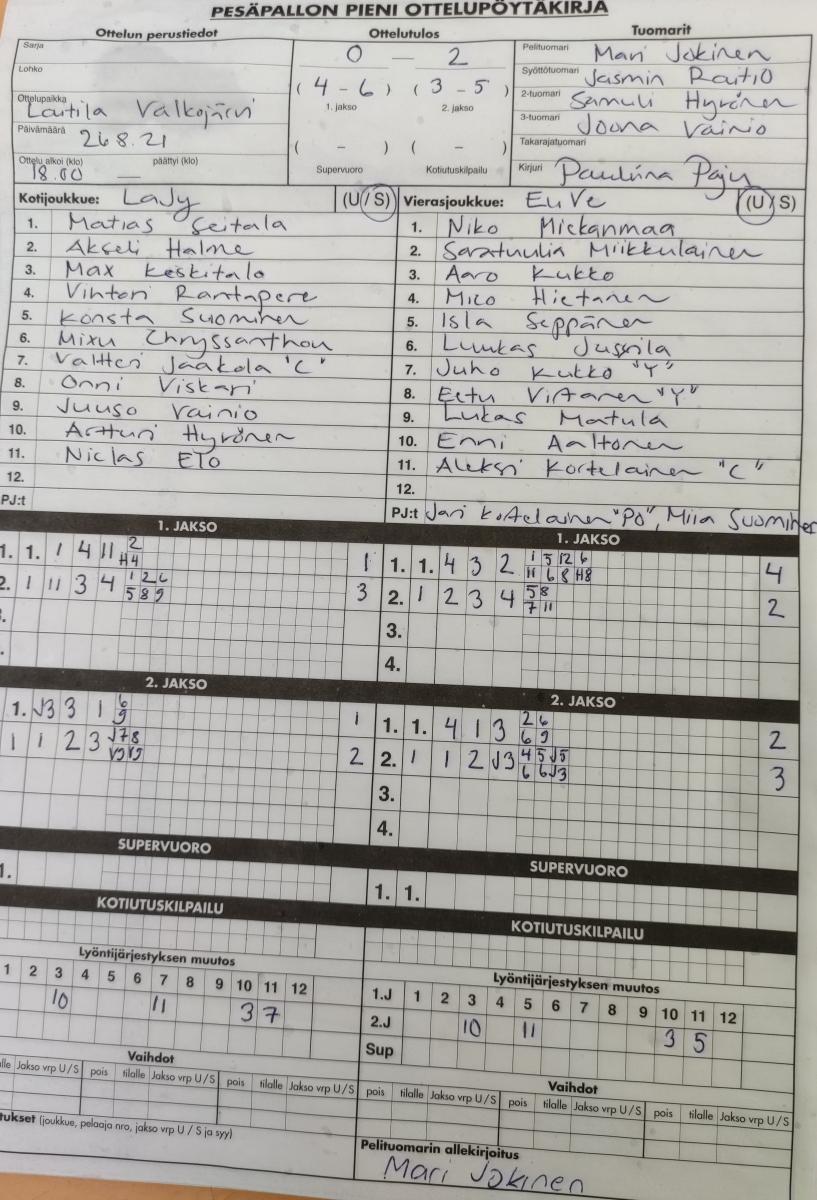 PESÄPALLON PIENI OTTELUPÖYTÄKIRJA
Ottelun perustiedot
Sarja
Lohko
Ottelupaikka
Laitila Valkojärvi
Päivämäärä
26.8.21
Ottelu alkoi (klo) päättyi (klo)
18.00 —
Ottelutulos
0 — 2
(4 - 6) (3 - 5)
1. jakso 2. jakso
( - ) ( - )
Supervuoro Kotiutuskilpailu
Tuomarit
Pelituomari Mari Jokinen
Syöttötuomari Jasmin Raitio
2-tuomari Samuli Hyrönen
3-tuomari Joona Vainio
Takarajatuomari
Kirjuri Pauliina Paju
Kotijoukkue: LaJy (U/S)
1. Matias Seitala
2. Akseli Halme
3. Max Keskitalo
4. Vihtori Rantapere
5. Konsta Suominen
6. Mixu Chryssanthou
7. Valtteri Jaakola "C"
8. Onni Viskari
9. Juuso Vainio
10. Artturi Hyrönen
11. Niclas Elo
12.
PJ:t
Vierasjoukkue: EuVe (U/S)
1. Niko Mickanmaa
2. Saratuulia Miikkulainen
3. Aaro Kukko
4. Mico Hietanen
5. Isla Seppänen
6. Luukas Jussila
7. Juho Kukko "Y"
8. Eetu Virtanen "Y"
9. Lukas Matula
10. Enni Aaltonen
11. Aleksi Kortelainen "C"
12.
PJ:t Jari Kortelainen "PO", Miia Suominen
1. JAKSO
1. 1. 1 4 11 2 1
H4
2. 1 11 3 4 1 2 6 3
5 8 9
1. JAKSO
1. 1. 4 3 2 1 5 12 6 4
11 6 8 H8
2. 1 2 3 4 5 8 2
7 11
3.
4.
2. JAKSO
1. J3 3 1 6 1
9
1 1 2 3 J7 8 2
2. JAKSO
1. 1. 4 1 3 2 6 2
6 9
2. 1 1 2 J3 4 5 J5 3
6 6 J3
3.
4.
SUPERVUORO
1.
SUPERVUORO
1. 1.
KOTIUTUSKILPAILU
KOTIUTUSKILPAILU
Lyöntijärjestyksen muutos
1 2 3 4 5 6 7 8 9 10 11 12
10 11 3 7
Lyöntijärjestyksen muutos
1.J 1 2 3 4 5 6 7 8 9 10 11 12
2.J 10 11 3 5
Sup
Vaihdot
Jakso vrp U/S pois tilalle Jakso vrp U/S pois tilalle Jakso vrp U/S
Vaihdot
pois tilalle Jakso vrp U/S pois tilalle Jakso vrp U/S pois tilalle Jakso vrp U/S
(joukkue, pelaaja nro, jakso vrp U / S ja syy)
Pelituomarin allekirjoitus
Mari Jokinen